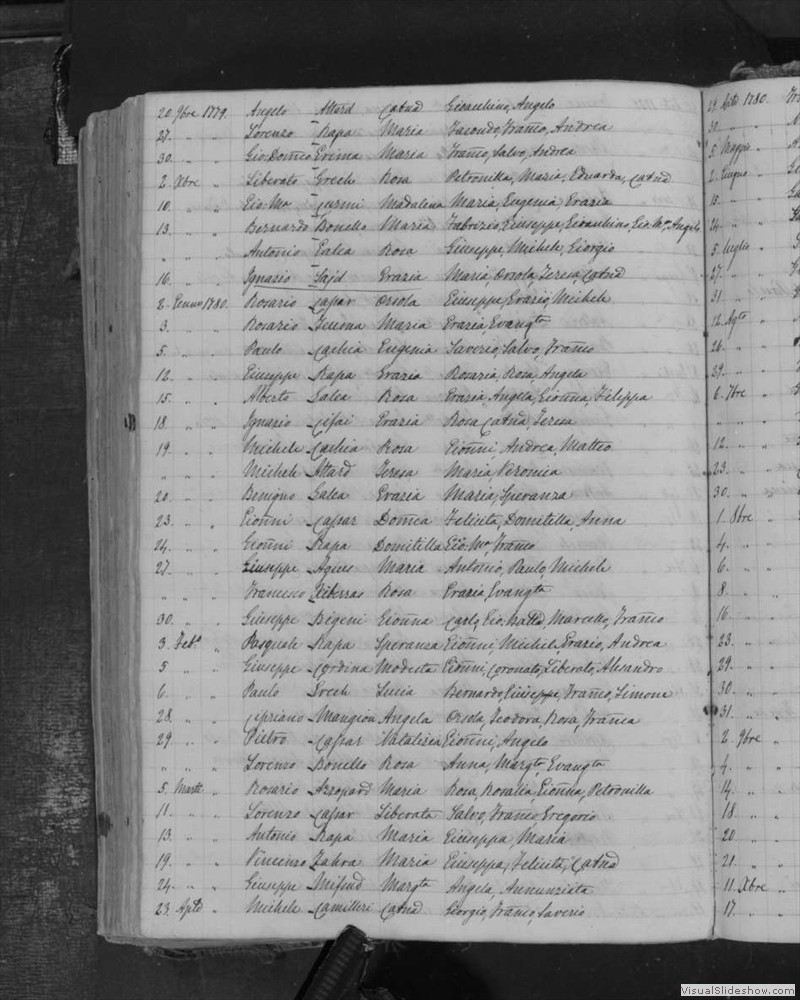 20. 9bre 1779. Angelo Attard Catna Gioanchino, Angelo
27. " " Lorenzo Rapa Maria Facondo, Franco, Andrea
30. " " Gio: Domco Erima Maria Franco, Salvo, Andrea
2. Xbre " Liberato Grech Rosa Petronilla, Maria, Eduarda, Catna
10. " " Gio: Ma Curmi Madalena Maria, Eugenia Grazia
13. " " Bernardo Bonello Maria Fabrizio, Giuseppe, Gioanchino, Gio: Ma, Angelo
" " " Antonio Galea Rosa Giuseppe, Michele, Giorgio
16. " " Ignazio Sajd Grazia Maria, Orsola, Teresa, Catna
2. Gennro 1780. Rosario Caspar Orsola Giuseppa, Grazio, Michele
3. " " Rosario Maria Grazia, Evangta
5. " " Paulo Cachia Eugenia Saverio, Salvo, Franco
12. " " Giuseppe Rapa Grazia Rosaria, Rosa, Angela
15. " " Alberto Galea Rosa Grazia, Angela, Gionna, Filippa
18. " " Ignazio Cifai Grazia Rosa, Catna, Teresa
19. " " Michele Cachia Rosa Gionni, Andrea, Matteo
" " " Michele Attard Teresa Maria Veronica
20. " " Benigno Galea Grazia Maria, Speranza
23. " " Gionni Caspar Domca Felicita, Domitilla, Anna
24. " " Gionni Rapa Domitilla Gio: Ma, Franco
27. " " Giuseppe Agius Maria Antonio, Paulo, Michele
" " " Francesco Xiberras Rosa Grazia, Evangta
30. " " Giuseppe Bigeni Gionna Carlo, Gio: Batta, Marcello, Franco
3. Feb.o " Pasquale Rapa Speranza Gionni, Michele, Grazio, Andrea
5 " " Giuseppe Cordina Modesta Gionni, Coronato, Liberato, Alesandro
6. " " Paulo Grech Lucia Bernardo, Giuseppe, Franco, Simone
28. " " Cipriano Mangion Angela Orsola, Teodora, Rosa, Franca
29. " " Pietro Caspar Natalizia Gionni, Angelo
" " " Lorenzo Bonello Rosa Anna, Margta, Evangta
5. Marzo " Rosario Azzopard Maria Rosa, Rosalia, Gionna, Petronilla
11. " " Lorenzo Caspar Liberata Salvo, Franco, Gregorio
13. " " Antonio Rapa Maria Giuseppa, Maria
19. " " Vincenzo Zahra Maria Giuseppa, Felicita, Catna
24. " " Giuseppe Mifsud Margta Angela, Annunziata
23. Aple " Michele Camilleri Catna Giorgio, Franco, Saverio
29. 1780.
30. " "
5. Maggio "
2. Giugno "
15. " "
24. " "
5. Luglio "
27. " "
31. " "
12. Agto "
26. " "
29. " "
6. 7bre "
" " "
12. " "
23. " "
30. " "
1. 8bre "
4. " "
6. " "
8. " "
16. " "
23. " "
29. " "
30. " "
31. " "
2. 9bre "
4. " "
14. " "
18. " "
20. " "
21. " "
11. Xbre "
17. " "
VisualSlideshow.com